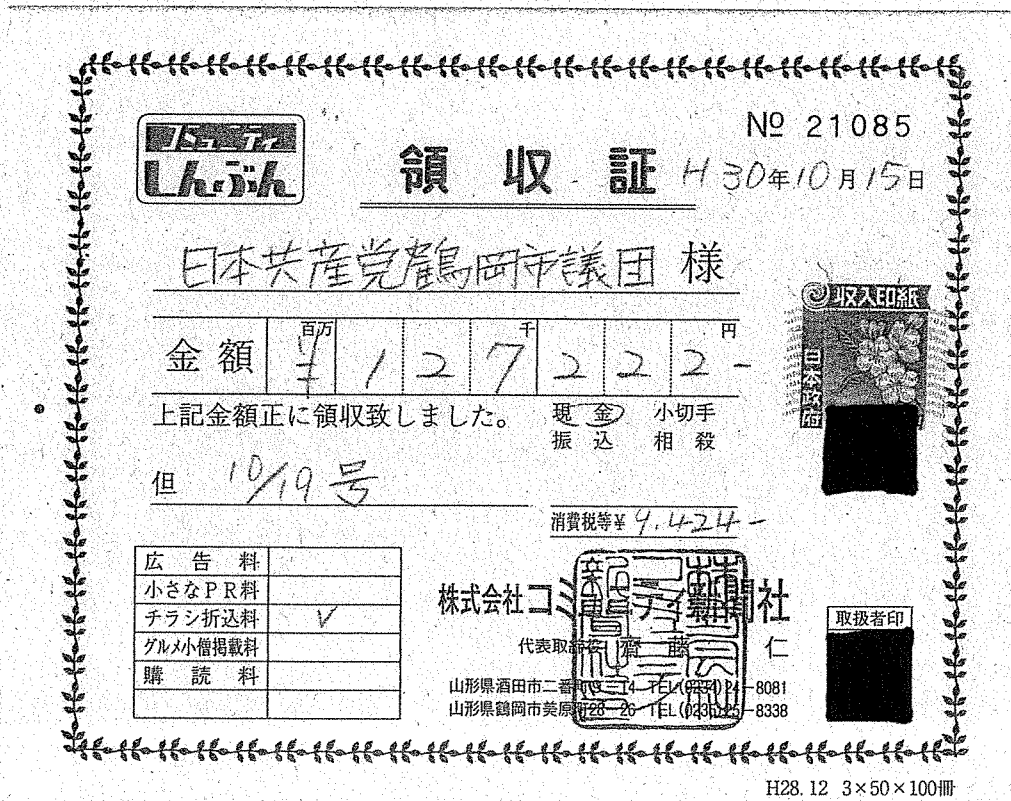 コミュニティ
しんぶん
領収証
№ 21085
H30年10月15日
日本共産党鶴岡市議団 様
収入印紙
日本政府
金額 百万 千 円
¥127222-
上記金額正に領収致しました。
現金 小切手
振込 相殺
但 10/19号
消費税等¥ 9,424-
広告料
小さなPR料
チラシ折込料 ✓
グルメ小僧掲載料
購読料
株式会社コミュニティ新聞社
代表取締役 齋藤 仁
山形県酒田市二番町 14 TEL(0234)24-8081
山形県鶴岡市美原町28-26 TEL(0235)25-8338
取扱者印
H28.12 3×50×100冊